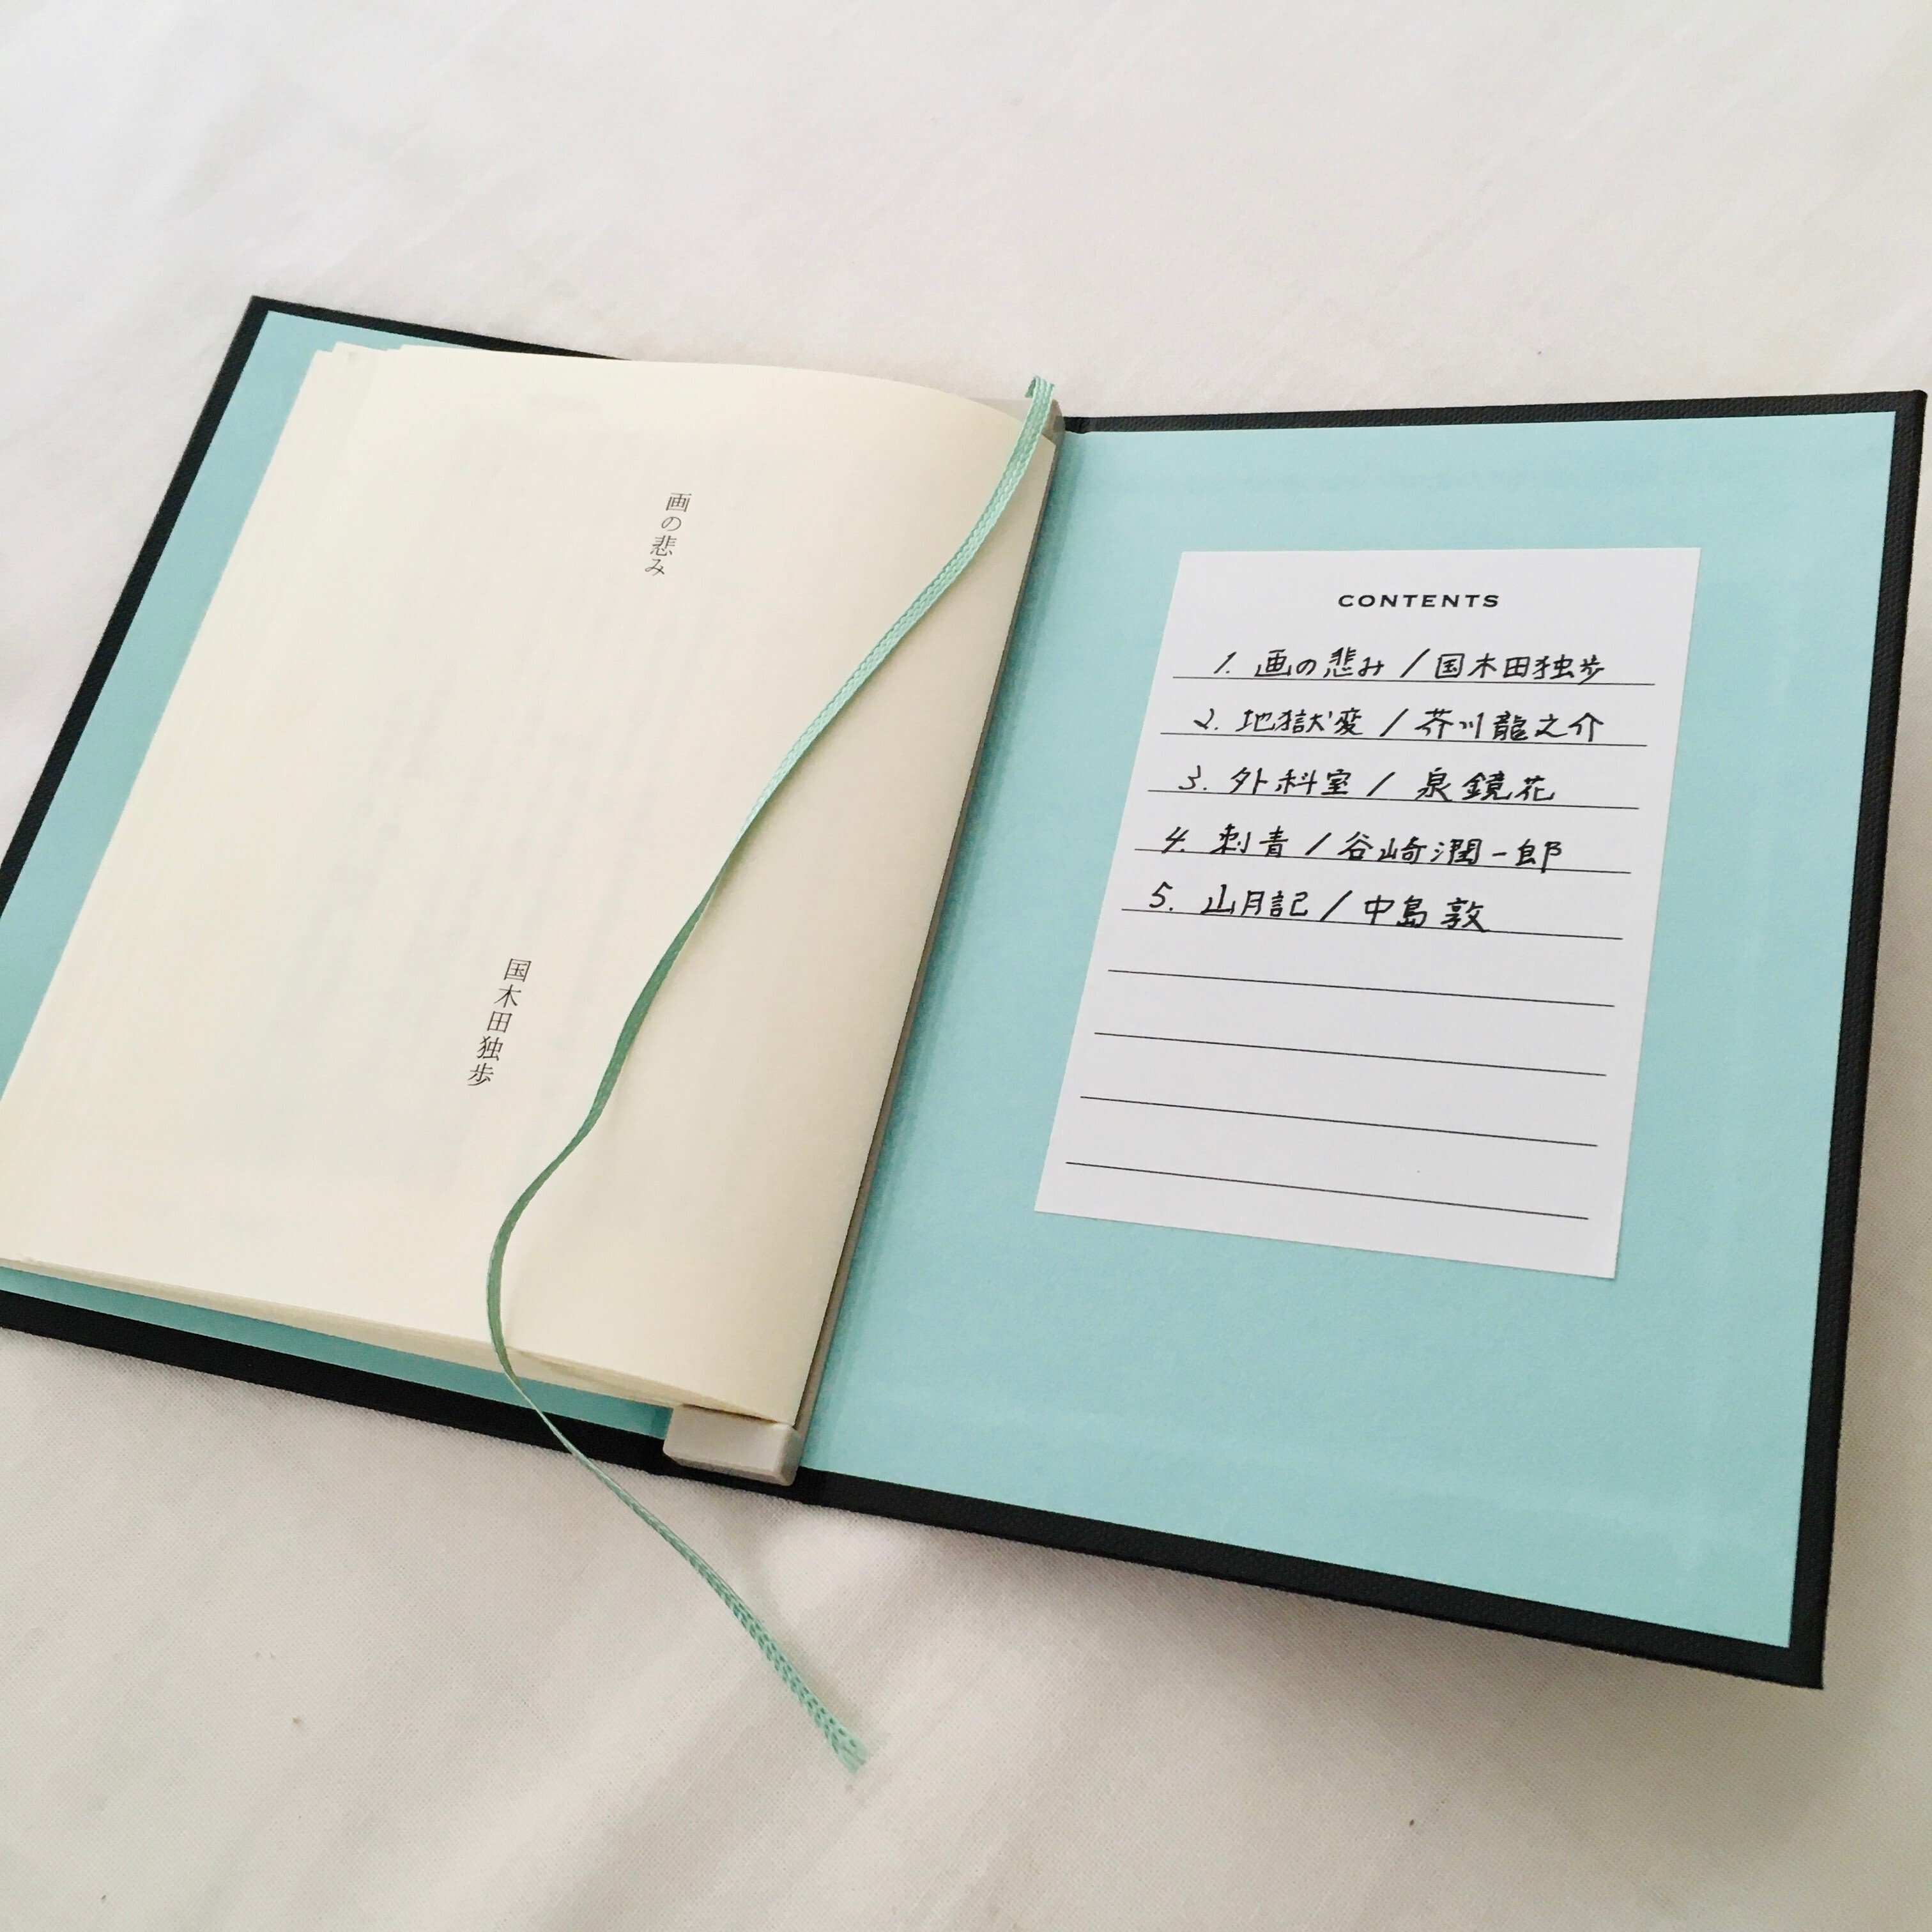 画の悲み
国木田独歩
CONTENTS
1. 画の悲み / 国木田独歩
2. 地獄変 / 芥川龍之介
3. 外科室 / 泉鏡花
4. 刺青 / 谷崎潤一郎
5. 山月記 / 中島敦